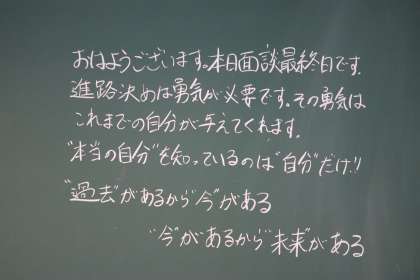 おはようございます。本日面談最終日です。
進路決めは勇気が必要です。その勇気は
これまでの自分が与えてくれます。
"本当の自分"を知っているのは"自分"だけ!!
"過去"があるから"今"がある
"今"があるから"未来"がある